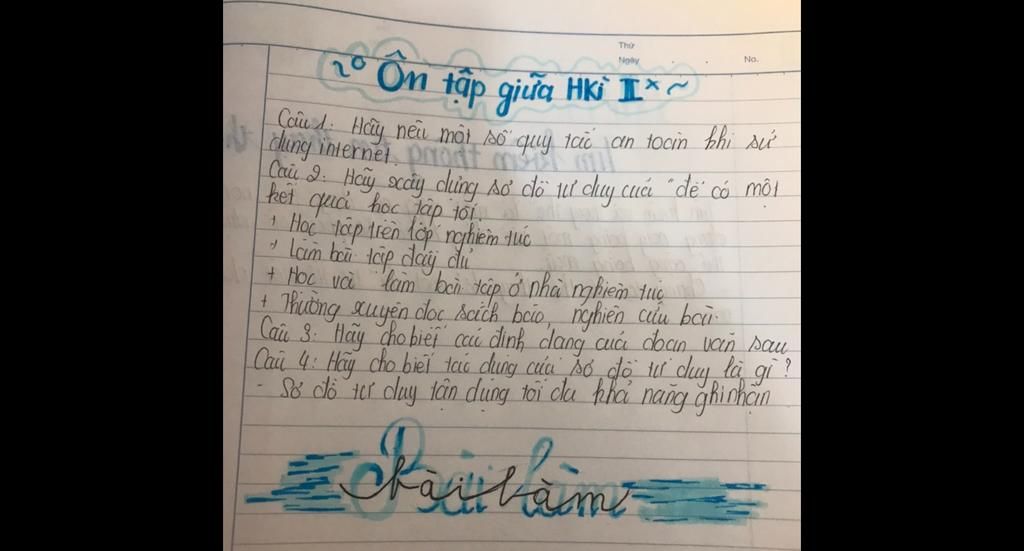 Thứ
Ngày
No.
Ôn tập giữa HKì II
Câu 1: Hãy nêu một số quy tắc an toàn khi sử
dụng internet.
Câu 2: Hãy xây dựng sơ đồ tư duy của "để có một
kết quả học tập tốt.
+ Học tập trên lớp nghiêm túc
+ Làm bài tập đầy đủ
+ Học và làm bài tập ở nhà nghiêm túc
+ Thường xuyên đọc sách báo, nghiên cứu bài.
Câu 3: Hãy cho biết các định dạng của đoạn văn sau
Câu 4: Hãy cho biết tác dụng của sơ đồ tư duy là gì?
- Sơ đồ tư duy tận dụng tối đa khả năng ghi nhận
Bài làm